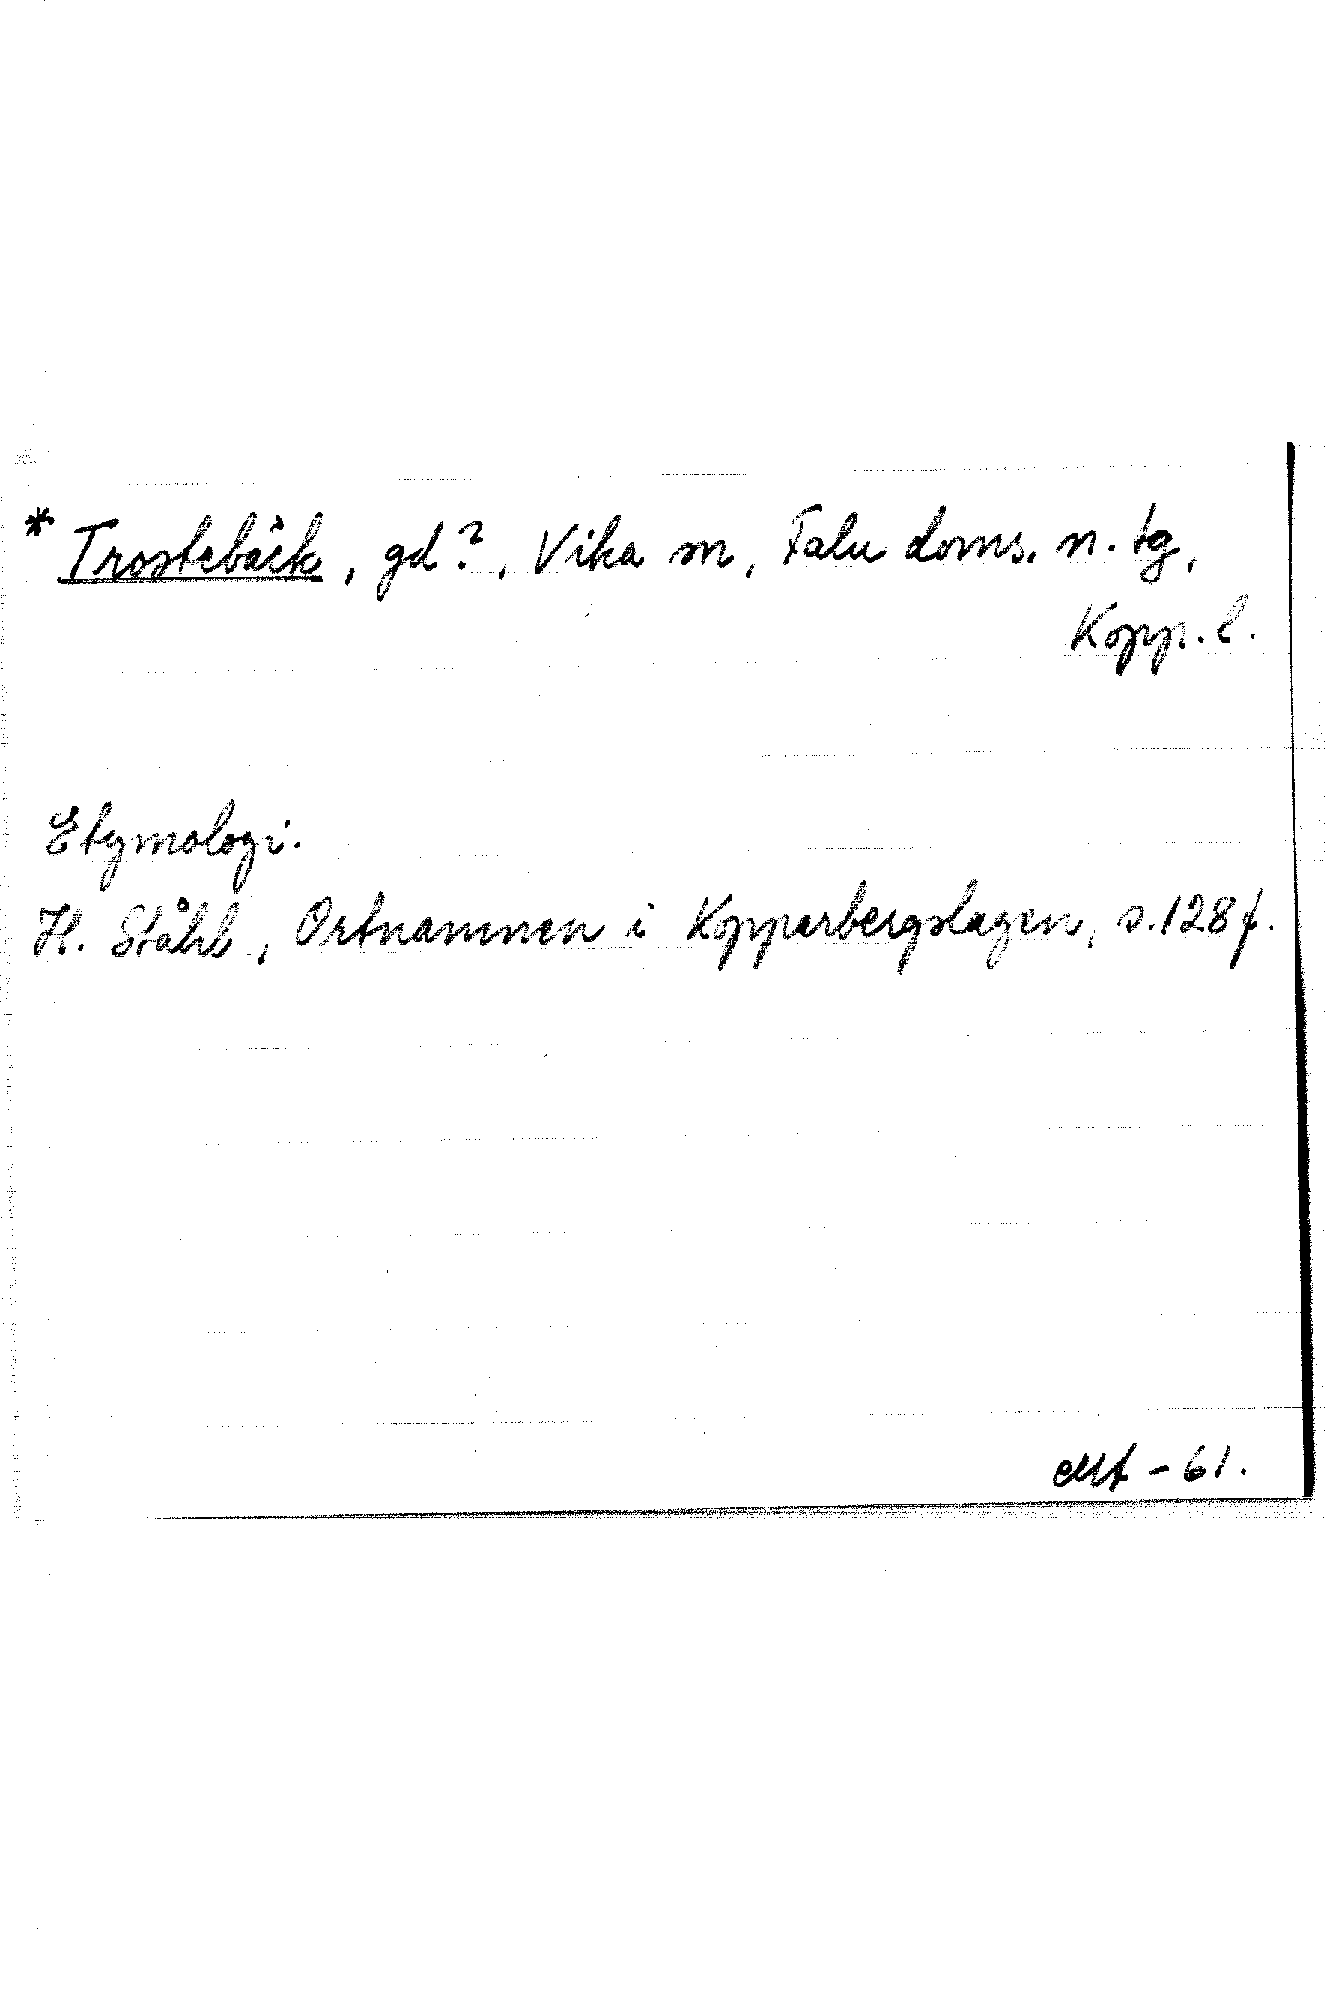 * Trostebäck, gd?, Vika sn, Falu doms. n. tg,
Kopp. l.
Etymologi.
H. Ståhl, Ortnamnen i Kopparbergslagen, s. 128 f.
- 61.